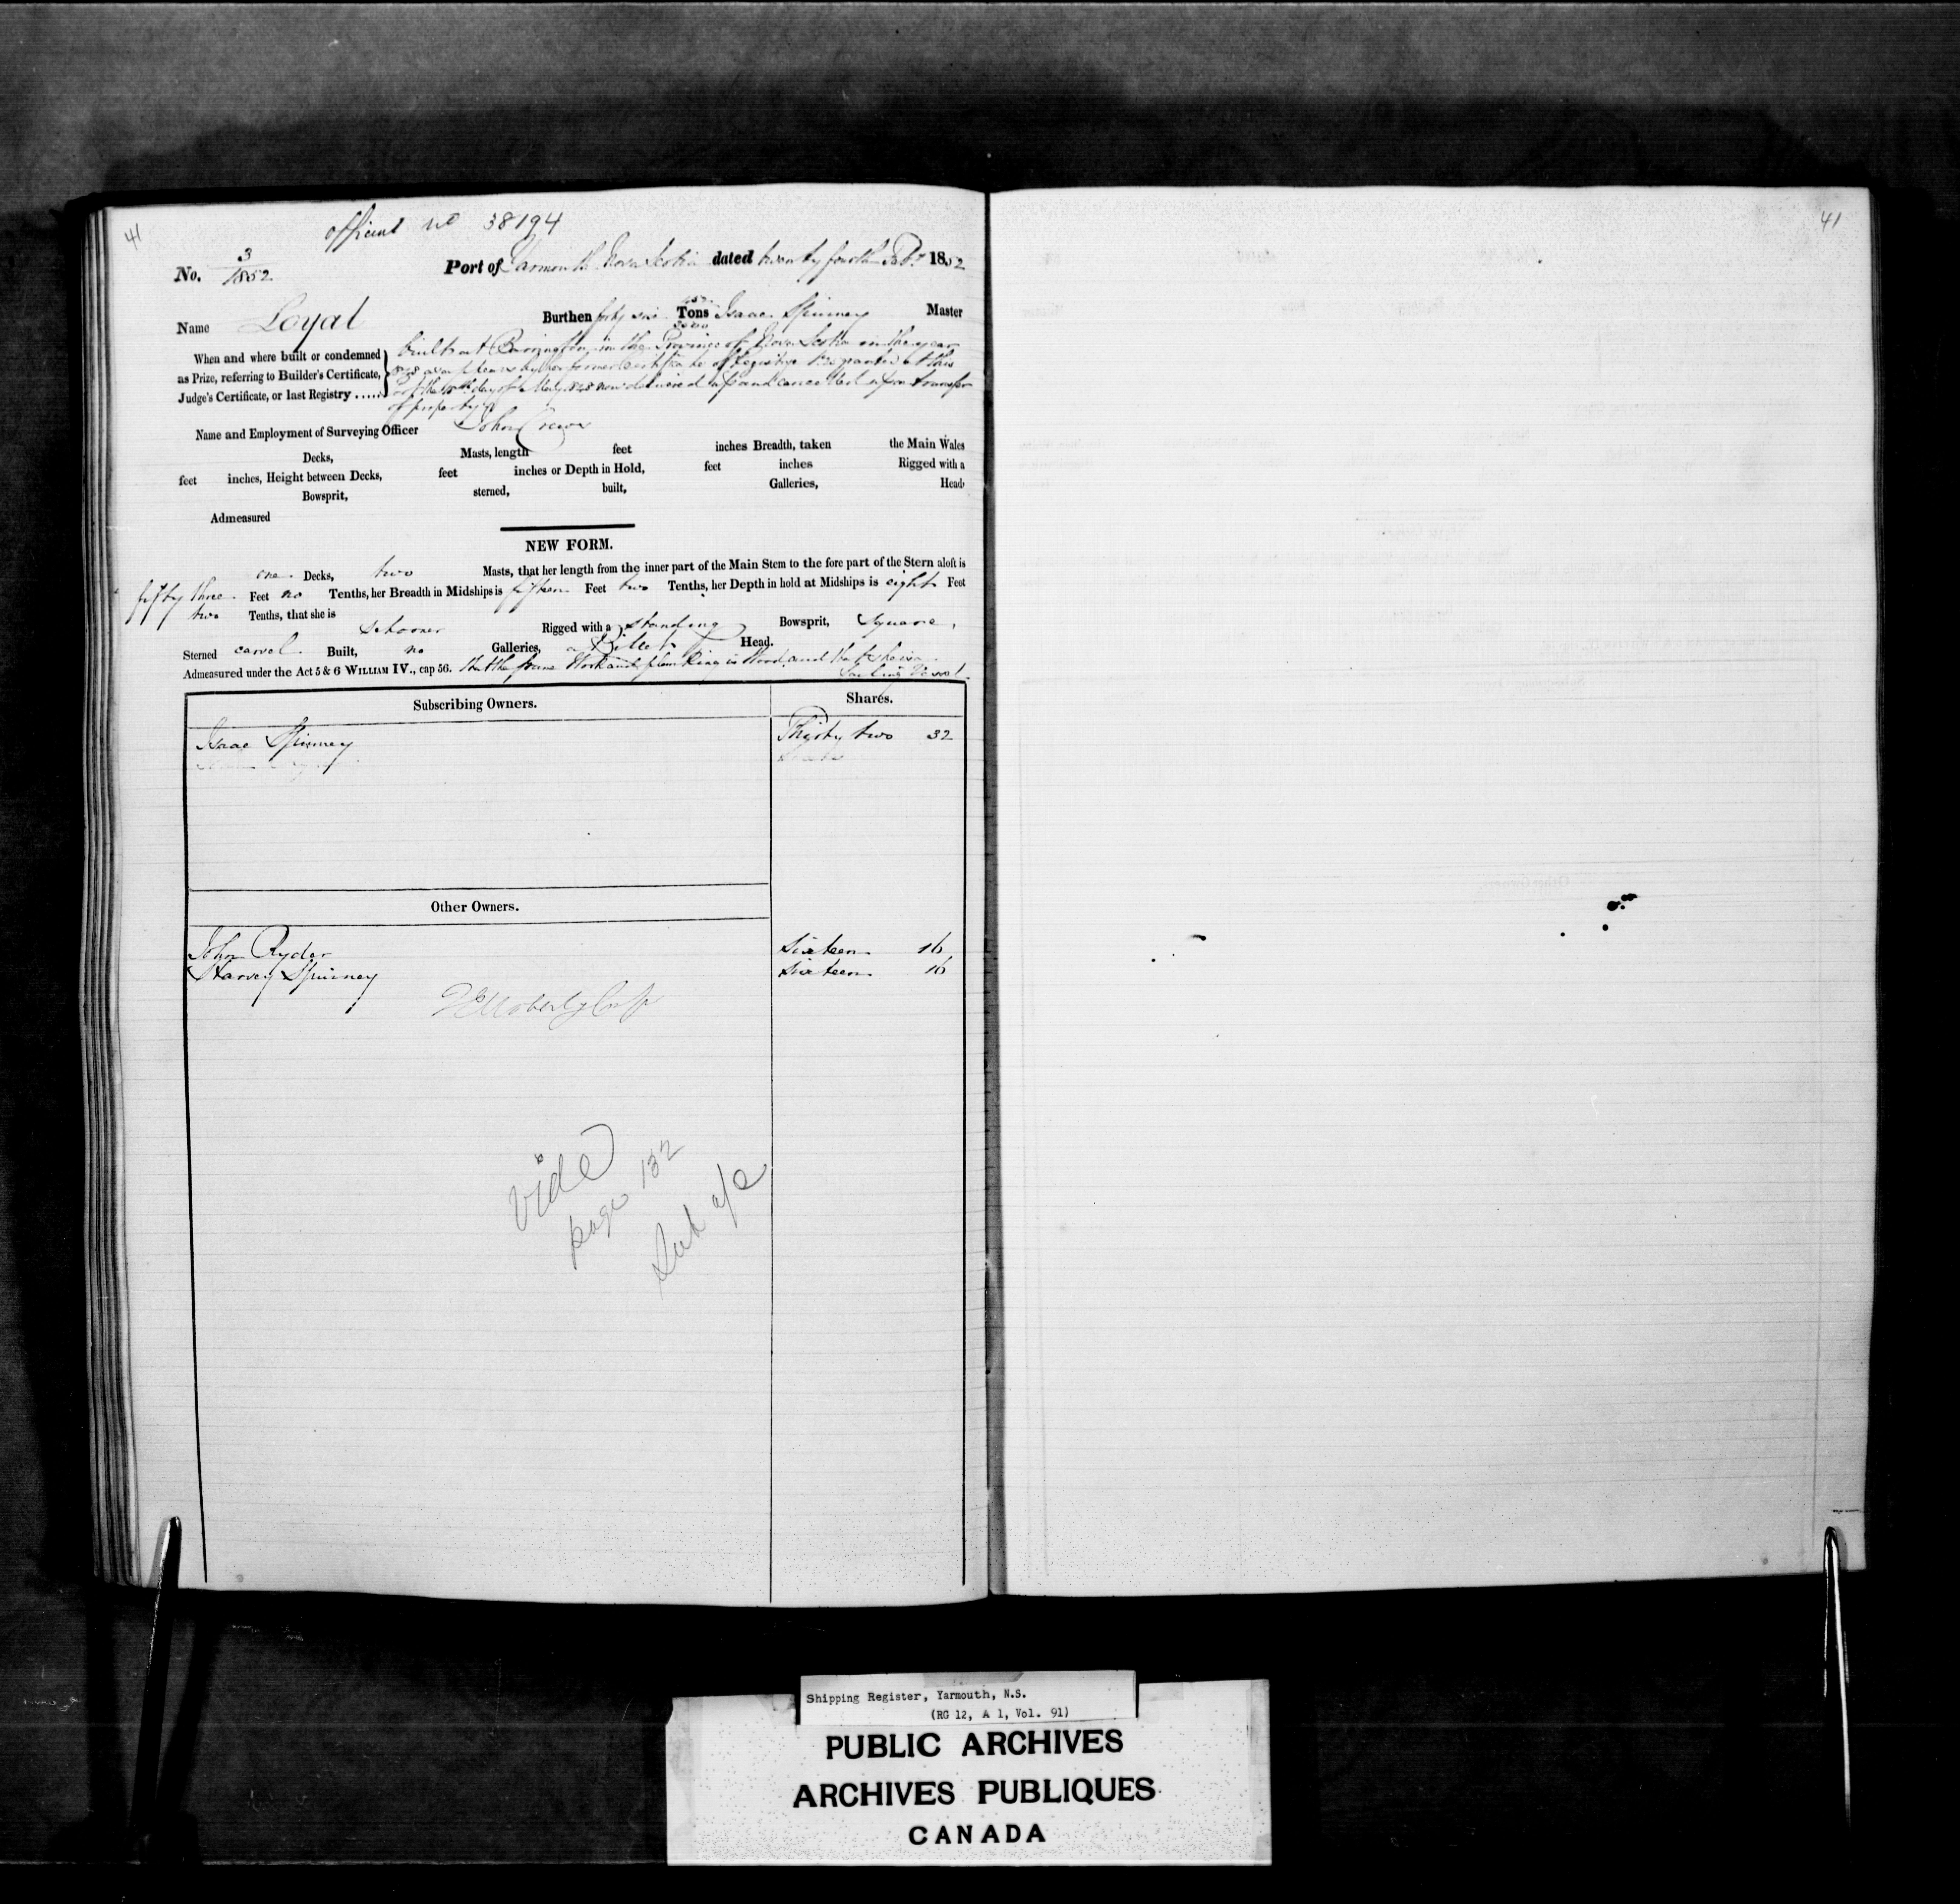 41
official no 38194
No. 3/1852 Port of Yarmouth Nova Scotia dated twenty fourth Feby 1852
Name Loyal Burthen forty six Tons Isaac Spinney Master
3500
When and where built or condemned as Prize, referring to Builder's Certificate, Judge's Certificate, or last Registry ......
built at Barrington in the Province of Nova Scotia in the year
1848 as appears by her former Certificate of Registry granted at this
Port the day of May 1848 now delivered up and cancelled upon transfer
of property
Name and Employment of Surveying Officer John Crowe
Decks, Masts, length feet inches Breadth, taken the Main Wales
feet inches, Height between Decks, feet inches or Depth in Hold, feet inches Rigged with a
Bowsprit, sterned, built, Galleries, Head,
Admeasured
NEW FORM.
one Decks, two Masts, that her length from the inner part of the Main Stem to the fore part of the Stern aloft is
fifty three Feet no Tenths, her Breadth in Midships is fifteen Feet two Tenths, her Depth in hold at Midships is eight Feet
two Tenths, that she is Schooner Rigged with a standing Bowsprit, Square,
Sterned carvel Built, no Galleries, a Billet Head.
Admeasured under the Act 5 & 6 WILLIAM IV., cap 56. that the frame Work and planking is Wood, and that she is a
Sailing Vessel
Subscribing Owners. Shares.
Isaac Spinney Thirty two 32
Other Owners.
John Ryder Sixteen 16
Harvey Spinney Sixteen 16
vide
page 132
Sub a/c
41
Shipping Register, Yarmouth, N.S.
(RG 12, A 1, Vol. 91)
PUBLIC ARCHIVES
ARCHIVES PUBLIQUES
CANADA